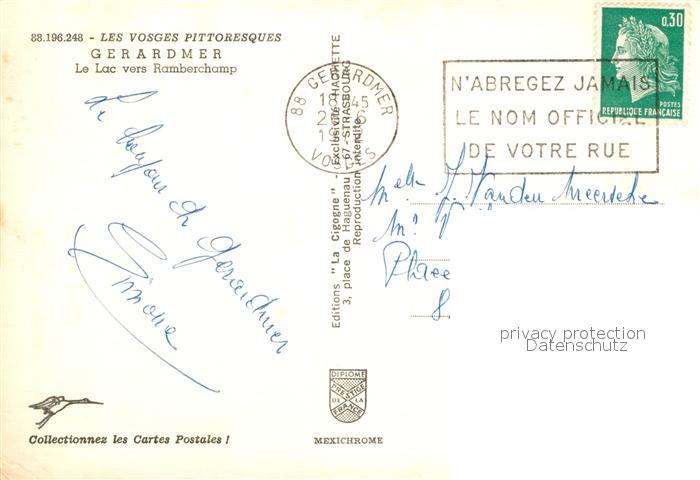 88.196.248 - LES VOSGES PITTORESQUES
GERARDMER
Le Lac vers Ramberchamp
Un bonjour de Gerardmer
Simone
Collectionnez les Cartes Postales !
Editions "La Cigogne" - Exclusivité HACHETTE
3, place de Haguenau - 67 - STRASBOURG
Reproduction interdite
DIPLOME
PRESTIGE
DE LA
FRANCE
MEXICHROME
88 GERARDMER
VOSGES
N'ABREGEZ JAMAIS
LE NOM OFFICIEL
DE VOTRE RUE
0,30
POSTES
REPUBLIQUE FRANÇAISE
Melle J. Vanden Meersche
Place
8
privacy protection
Datenschutz